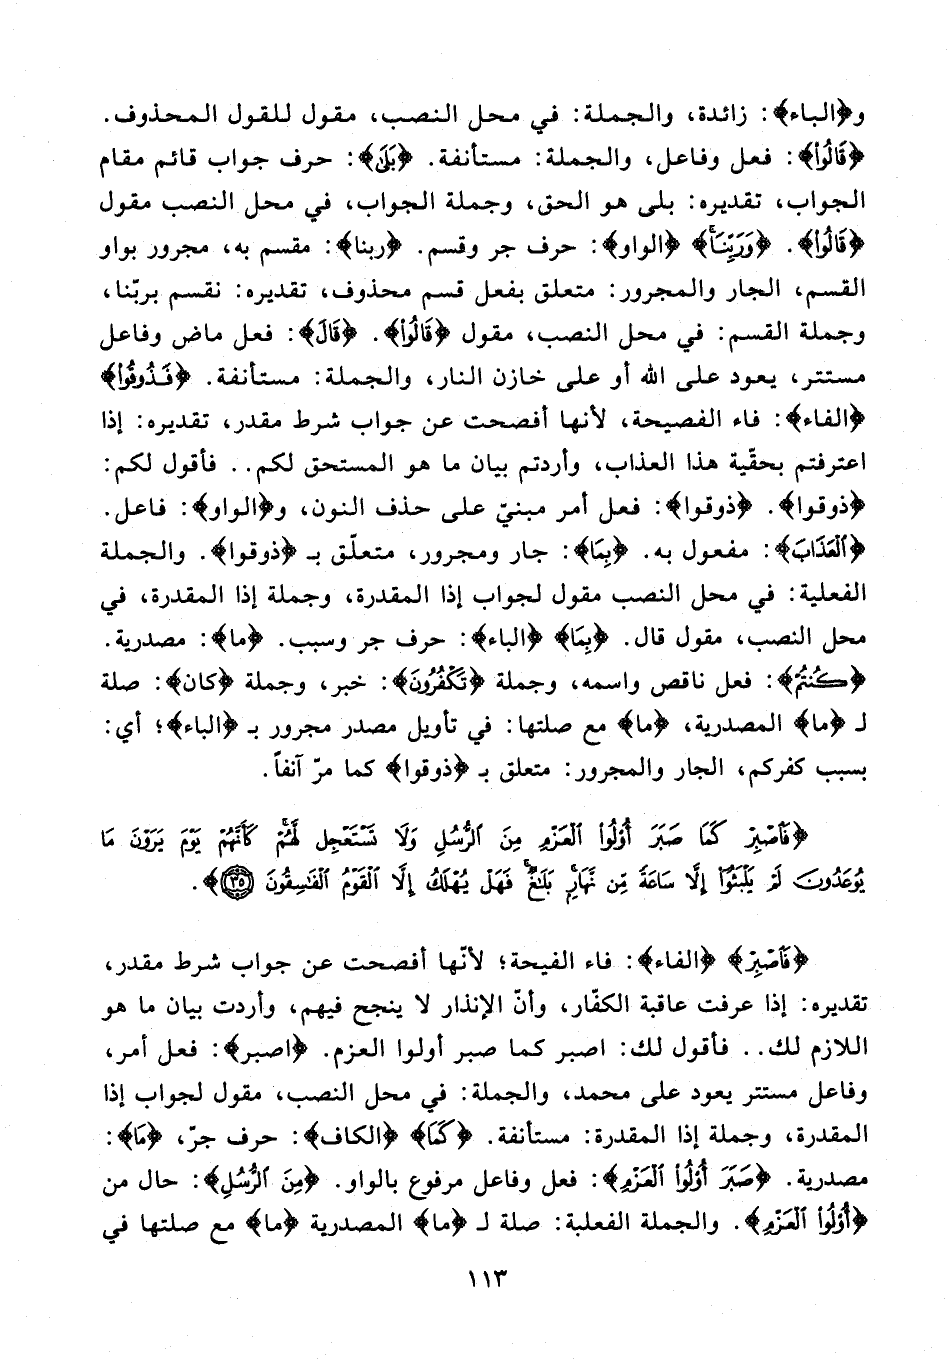 و﴿الباء﴾: زائدة، والجملة: في محل النصب، مقول للقول المحذوف.
﴿قَالُواْ﴾: فعل وفاعل، والجملة: مستأنفة. ﴿بَلَىٰ﴾: حرف جواب قائم مقام
الجواب، تقديره: بلى هو الحق، وجملة الجواب، في محل النصب مقول
﴿قَالُواْ﴾. ﴿وَرَبِّنَاۚ﴾ ﴿الواو﴾: حرف جر وقسم. ﴿ربنا﴾: مقسم به، مجرور بواو
القسم، الجار والمجرور: متعلق بفعل قسم محذوف، تقديره: نقسم بربّنا،
وجملة القسم: في محل النصب، مقول ﴿قَالُواْ﴾. ﴿قَالَ﴾: فعل ماض وفاعل
مستتر، يعود على الله أو على خازن النار، والجملة: مستأنفة. ﴿فَذُوقُواْ﴾
﴿الفاء﴾: فاء الفصيحة، لأنها أفصحت عن جواب شرط مقدر، تقديره: إذا
اعترفتم بحقّية هذا العذاب، وأردتم بيان ما هو المستحق لكم.. فأقول لكم:
﴿ذوقوا﴾. ﴿ذوقوا﴾: فعل أمر مبنيّ على حذف النون، و﴿الواو﴾: فاعل.
﴿ٱلْعَذَابَ﴾: مفعول به. ﴿بِمَا﴾: جار ومجرور، متعلّق بـ ﴿ذوقوا﴾. والجملة
الفعلية: في محل النصب مقول لجواب إذا المقدرة، وجملة إذا المقدرة، في
محل النصب، مقول قال. ﴿بِمَا﴾ ﴿الباء﴾: حرف جر وسبب. ﴿ما﴾: مصدرية.
﴿كُنتُمْ﴾: فعل ناقص واسمه، وجملة ﴿تَكْفُرُونَ﴾: خبر، وجملة ﴿كان﴾: صلة
لـ ﴿ما﴾ المصدرية، ﴿ما﴾ مع صلتها: في تأويل مصدر مجرور بـ ﴿الباء﴾؛ أي:
بسبب كفركم، الجار والمجرور: متعلق بـ ﴿ذوقوا﴾ كما مرّ آنفاً.
﴿فَٱصْبِرْ كَمَا صَبَرَ أُوْلُواْ ٱلْعَزْمِ مِنَ ٱلرُّسُلِ وَلَا تَسْتَعْجِل لَّهُمْۚ كَأَنَّهُمْ يَوْمَ يَرَوْنَ مَا
يُوعَدُونَ لَمْ يَلْبَثُوٓاْ إِلَّا سَاعَةً مِّن نَّهَارِۭۚ بَلَٰغٌۚ فَهَلْ يُهْلَكُ إِلَّا ٱلْقَوْمُ ٱلْفَٰسِقُونَ ٣٥﴾.
﴿فَٱصْبِرْ﴾ ﴿الفاء﴾: فاء الفيحة؛ لأنّها أفصحت عن جواب شرط مقدر،
تقديره: إذا عرفت عاقبة الكفّار، وأنّ الإنذار لا ينجح فيهم، وأردت بيان ما هو
اللازم لك.. فأقول لك: اصبر كما صبر أولوا العزم. ﴿اصبر﴾: فعل أمر،
وفاعل مستتر يعود على محمد، والجملة: في محل النصب، مقول لجواب إذا
المقدرة، وجملة إذا المقدرة: مستأنفة. ﴿كَمَا﴾ ﴿الكاف﴾: حرف جرّ، ﴿مَا﴾:
مصدرية. ﴿صَبَرَ أُوْلُواْ ٱلْعَزْمِ﴾: فعل وفاعل مرفوع بالواو. ﴿مِنَ ٱلرُّسُلِ﴾: حال من
﴿أُوْلُواْ ٱلْعَزْمِ﴾. والجملة الفعلية: صلة لـ ﴿ما﴾ المصدرية ﴿ما﴾ مع صلتها في
١١٣